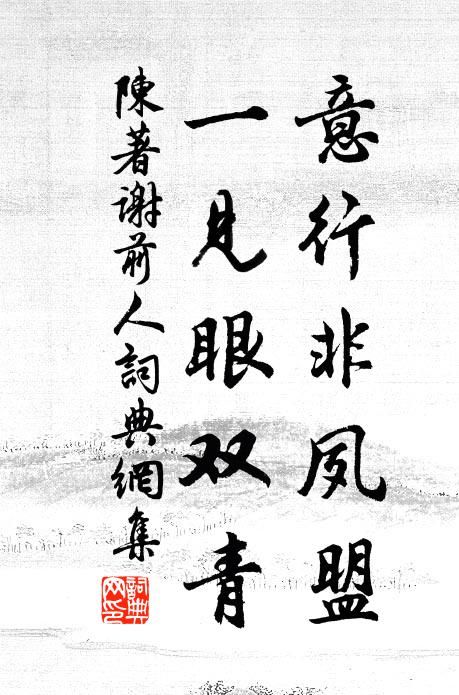 意行非夙盟
一见眼双青
陳著謝前人詞典網集
詞典网印